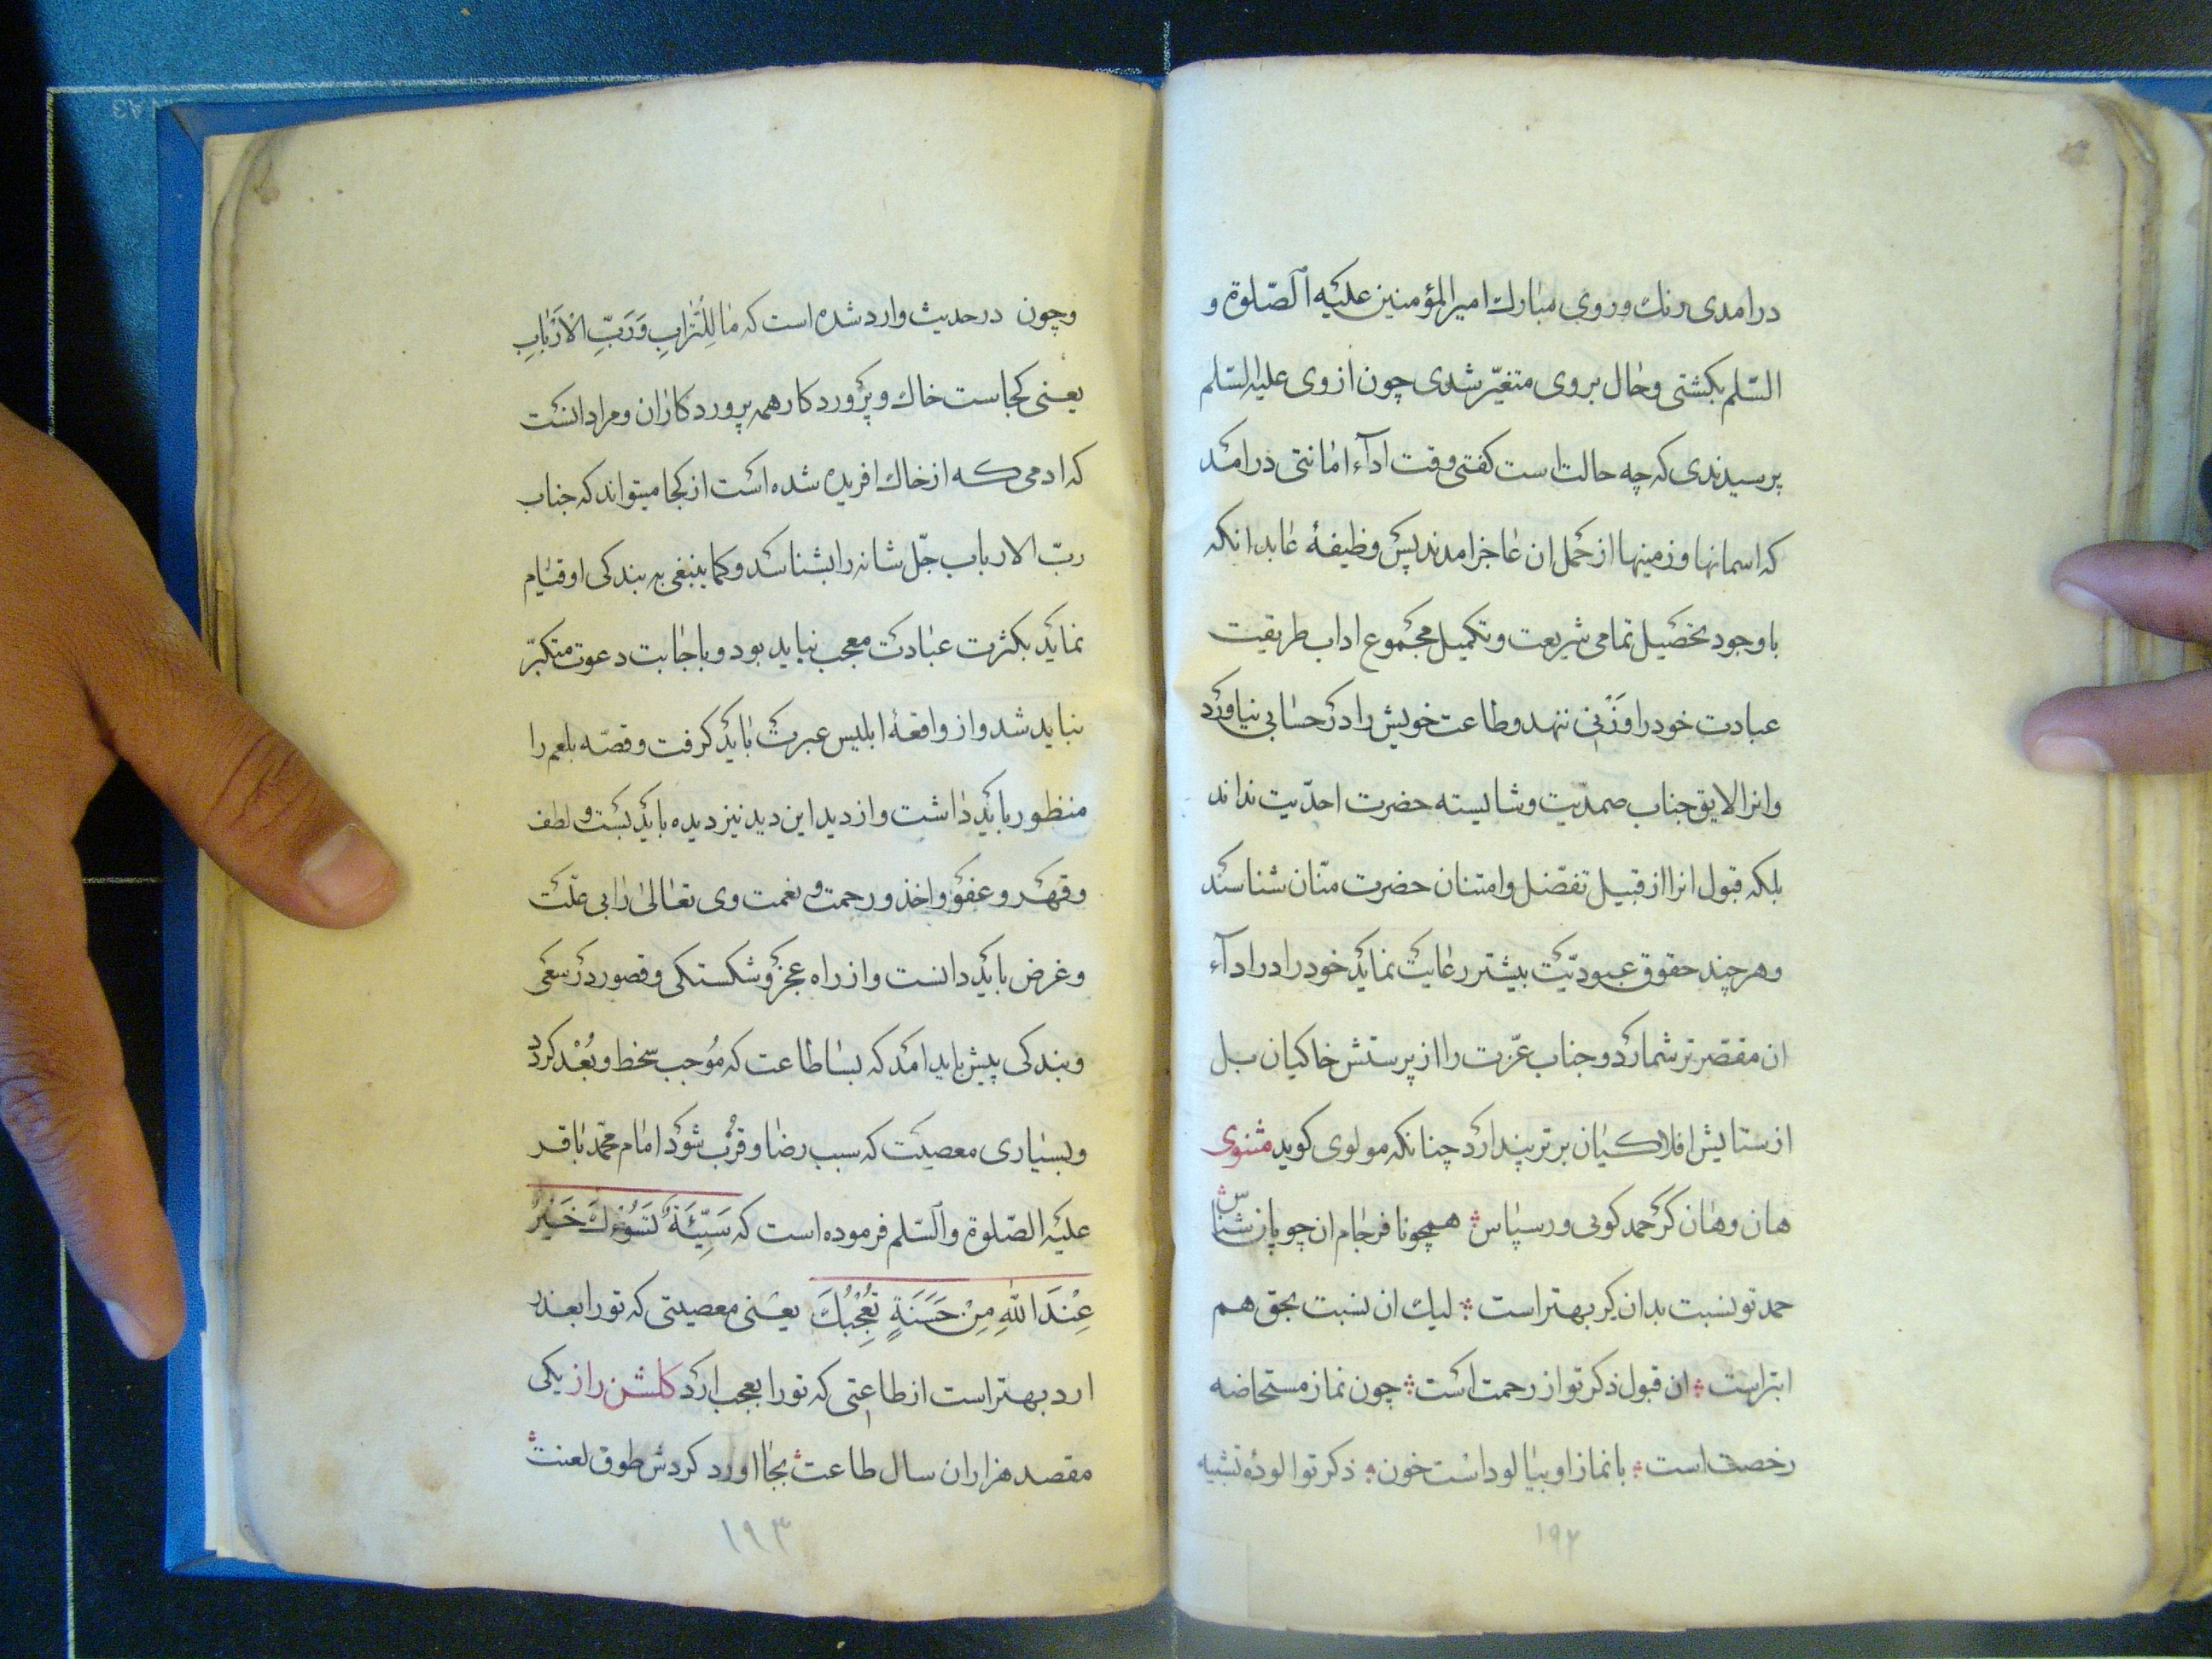 درامدی رنك وروی مبارك امیرالمؤمنین علیه الصّلوة و
السّلم بكشتی وحال بروی متغیّر شدی چون ازوی علیه السّلم
پرسیدندی كه چه حالت است كفتی وقت ادآء امانتی درامد
كه اسمانها وزمینها از حمل ان عاجز امدند پس وظیفهٔ عابد انكه
باوجود تحصیل تمامی شریعت وتكمیل مجموع اداب طریقت
عبادت خودرا وَزْنی ننهد وطاعت خویش را در حسابی نیاورد
وانرا لایق جناب صمدیّت وشایسته حضرت احدّیت نداند
بلكه قبول انرا از قبیل تفضّل وامتنان حضرت منّان شناسد
وهر چند حقوق عبودیّت بیشتر رعایت نماید خودرا در ادآء
ان مقصّر تر شمارد وجناب عزّت را از پرستش خاكیان بل
از ستایش افلاكیان برتر پندارد چنانكه مولوی كوید مثنوی
هان وهان كر حمد كویی ور سپاس همچو نافرجام ان چوپان شناس
حمد تو نسبت بدان كر بهتر است لیك ان نسبت بحق هم
ابتر است ان قبول ذكر تو از رحمت است چون نماز مستحاضه
رخصت است با نماز او بیالود است خون ذكر تو الودهٔ تشبیه
١٩٢
وچون در حدیث وارد شده است كه مَا لِلتُّرَابِ وَرَبِّ الْاَرْبَابِ
یعنی كجاست خاك و پروردكار همه پروردكاران ومراد انست
كه ادمی كه از خاك افریده شده است از كجا میتواند كه جناب
ربّ الارباب جّل شانه را بشناسد وكما ینبغی به بندكی او قیام
نماید بكثرت عبادت معجب نباید بود وباجابت دعوت متكبّر
نباید شد واز واقعهٔ ابلیس عبرت باید كرفت وقصّه بلعم را
منظور باید داشت واز دید این دید نیز دیده باید بست و لطف
وقهر و عفو واخذ ورحمت و نغمت وی تعالی را بی علّت
وغرض باید دانست واز راه عجز وشكستكی وقصور در سعی
وبندكی پیش باید امد كه بسا طاعت كه مُوجب سخط وبُعْد كردد
وبسیاری معصیت كه سبب رضا وقُرْب شود امام محمّد باقر
علیه الصّلوة والسّلم فرموده است كه سَیِّئَةٌ تَسُوْئُكَ خَیْرٌ
عِنْدَ اللّٰهِ مِنْ حَسَنَةٍ تُعْجِبُكَ یعنی معصیتی كه تو را بعذر
ارد بهتر است از طاعتی كه تو را بعجب ارد كلشن راز یكی
مقصد هزاران سال طاعت بجا اورد كردش طوق لعنت
١٩٣